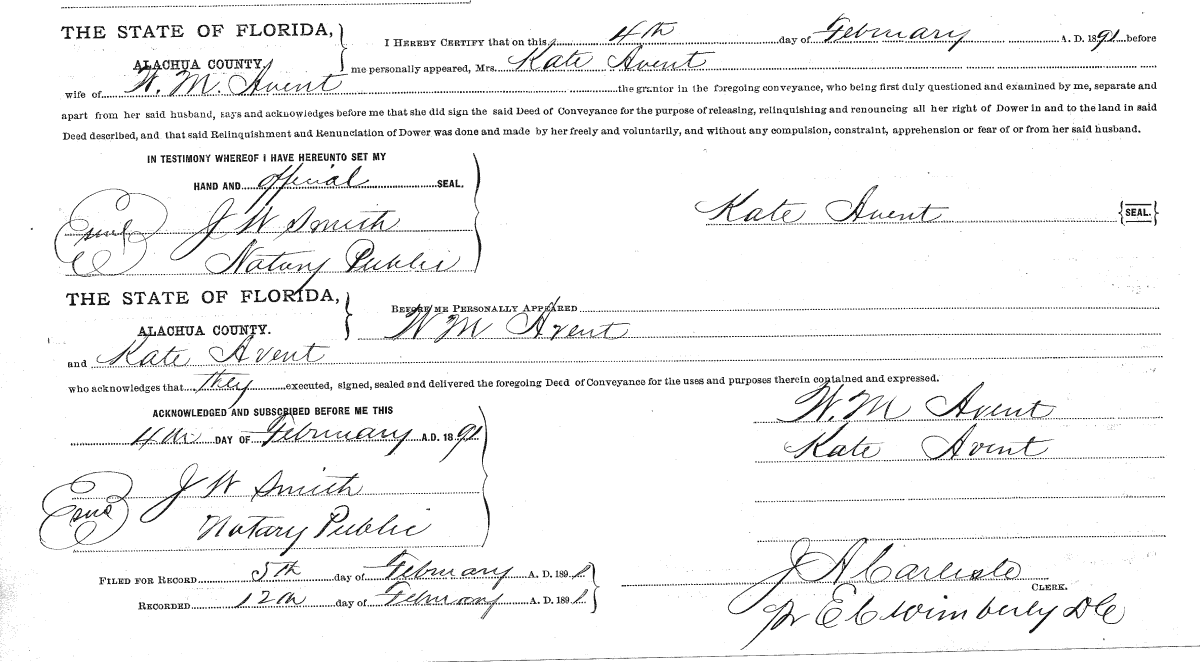 THE STATE OF FLORIDA,
I HEREBY CERTIFY that on this 4th day of February A. D. 1891 before
ALACHUA COUNTY,
me personally appeared, Mrs. Kate Avent
wife of W. M. Avent the grantor in the foregoing conveyance, who being first duly questioned and examined by me, separate and
apart from her said husband, says and acknowledges before me that she did sign the said Deed of Conveyance for the purpose of releasing, relinquishing and renouncing all her right of Dower in and to the land in said
Deed described, and that said Relinquishment and Renunciation of Dower was done and made by her freely and voluntarily, and without any compulsion, constraint, apprehension or fear of or from her said husband.
IN TESTIMONY WHEREOF I HAVE HEREUNTO SET MY
HAND AND official SEAL.
Kate Avent {SEAL.}
Seal J W Smith
Notary Public
THE STATE OF FLORIDA,
BEFORE ME PERSONALLY APPEARED
ALACHUA COUNTY.
W M Avent
and Kate Avent
who acknowledges that they executed, signed, sealed and delivered the foregoing Deed of Conveyance for the uses and purposes therein contained and expressed.
ACKNOWLEDGED AND SUBSCRIBED BEFORE ME THIS
W. M Avent
4th DAY OF February A.D. 1891
Kate Avent
Seal J W Smith
Notary Public
FILED FOR RECORD 5th day of February A. D. 1891
J A Carlisle
CLERK.
RECORDED 12th day of February A. D. 1891
pr E C Wimberly D C